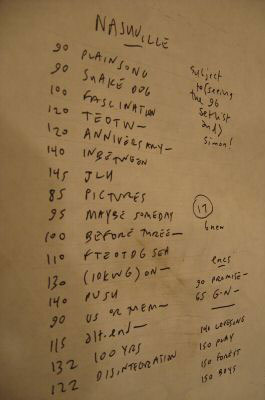 NASHVILLE
90 PLAINSONG
90 SNAKE DOG
100 FASCINATION
120 TEOTW —
120 ANNIVERSARY —
140 INBETWEEN
145 JLH
85 PICTURES
95 MAYBE SOMEDAY
100 BEFORE THREE —
110 FTEOTDG SEA
130 (10KNG) ON —
140 PUSH
90 US OR THEM —
115 alt. end —
132 100 YRS
122 DISINTEGRATION
Subject
to (seeing
the 96
setlist
and)
Simon!
17
6 new
encs
90 PROMISE —
65 G-N —
140 LOVESONG
150 PLAY
150 FOREST
150 BOYS